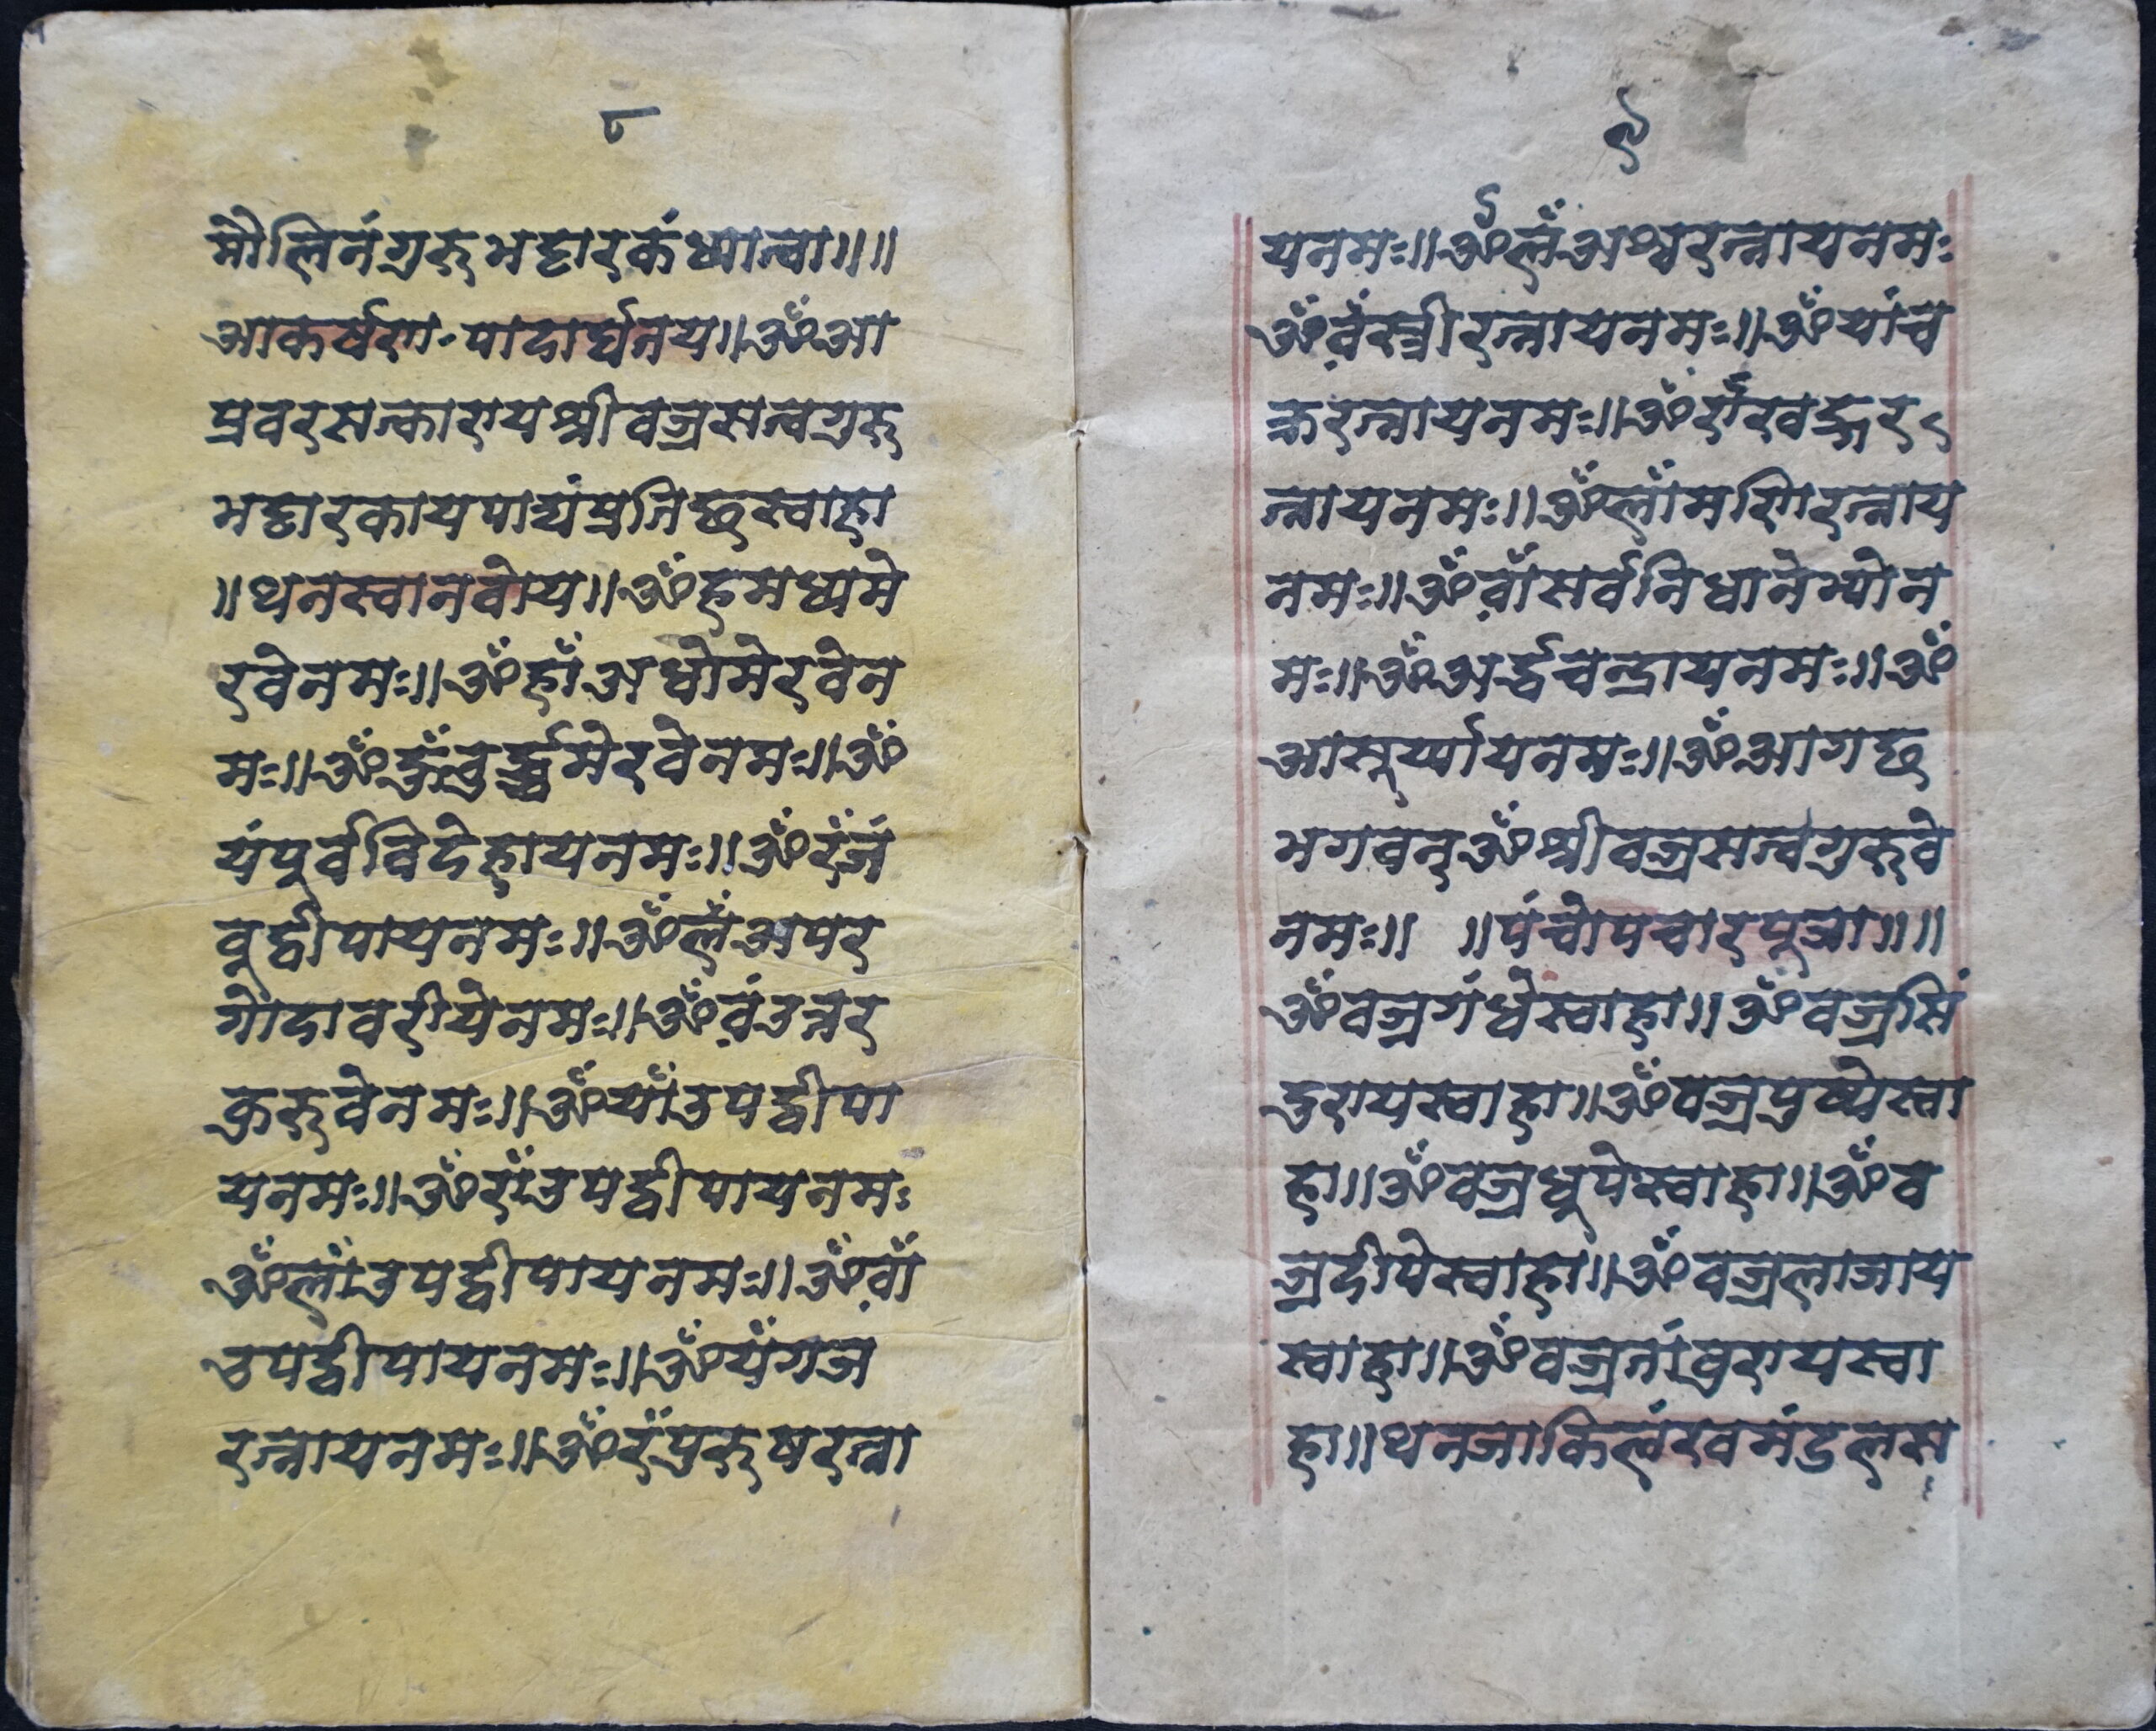 ८
मौलिनंगुरुभट्टारकंध्यात्वा॥॥
आकर्षण॰पादार्घनय॥ॐआ
प्रवरसत्कारायश्रीवज्रसत्वगुरु
भट्टारकायपाद्यंप्रतिछस्वाहा
॥थनस्वानबोय॥ॐहमध्यमे
रवेनमः॥ॐहाँअधोमेरवेन
मः॥ॐहूँउर्द्धमेरवेनमः॥ॐ
यंपुर्वविदेहायनमः॥ॐरँजं
वुद्वीपायनमः॥ॐलँअपर
गोदावरीयेनमः॥ॐवंउत्तर
कुरुवेनमः॥ॐयाँउपद्वीपा
यनमः॥ॐराँउपद्वीपायनमः
ॐलाँउपद्वीपायनमः॥ॐवाँ
उपद्वीपायनमः॥ॐयँगज
रत्नायनमः॥ॐरँपुरुषरत्ना
९
यनमः॥ॐलँअश्वरत्नायनमः
ॐवँस्त्रीरत्नायनमः॥ॐयांच
क्ररत्नायनमः॥ॐराँखड्गर
त्नायनमः॥ॐलाँमणिरत्नाय
नमः॥ॐवाँसर्वनिधानेभ्योन
मः॥ॐअर्द्धचन्द्रायनमः॥ॐ
आसूर्य्यायनमः॥ॐआगछ
भगवन्ॐश्रीवज्रसत्वगुरुवे
नमः॥ ॥पंचोपचारपुजा॥॥
ॐवज्रगंधेस्वाहा॥ॐवज्रसिं
दुरायस्वाहा॥ॐवज्रपुष्पेस्वा
हा॥ॐवज्रधुपेस्वाहा॥ॐव
ज्रदीपेस्वाहा॥ॐवज्रलाजाय
स्वाहा॥ॐवज्रतांवुरायस्वा
हा॥थनजाकिलंखमंडलस